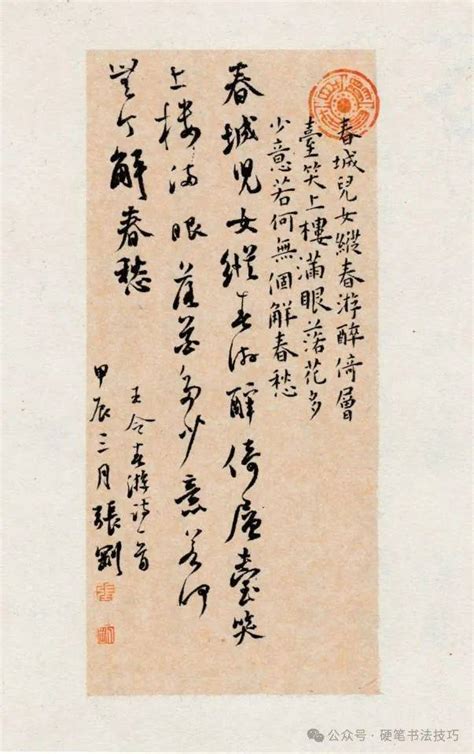 春城兒女縱春游醉倚層
臺笑上樓滿眼落花多
少意若何無個解春愁
春城兒女縱春游醉倚層臺笑
上楼滿眼落花多少意若何
無个解春愁
王令春游詩一首
甲辰三月張剛
公众号 · 硬笔书法技巧